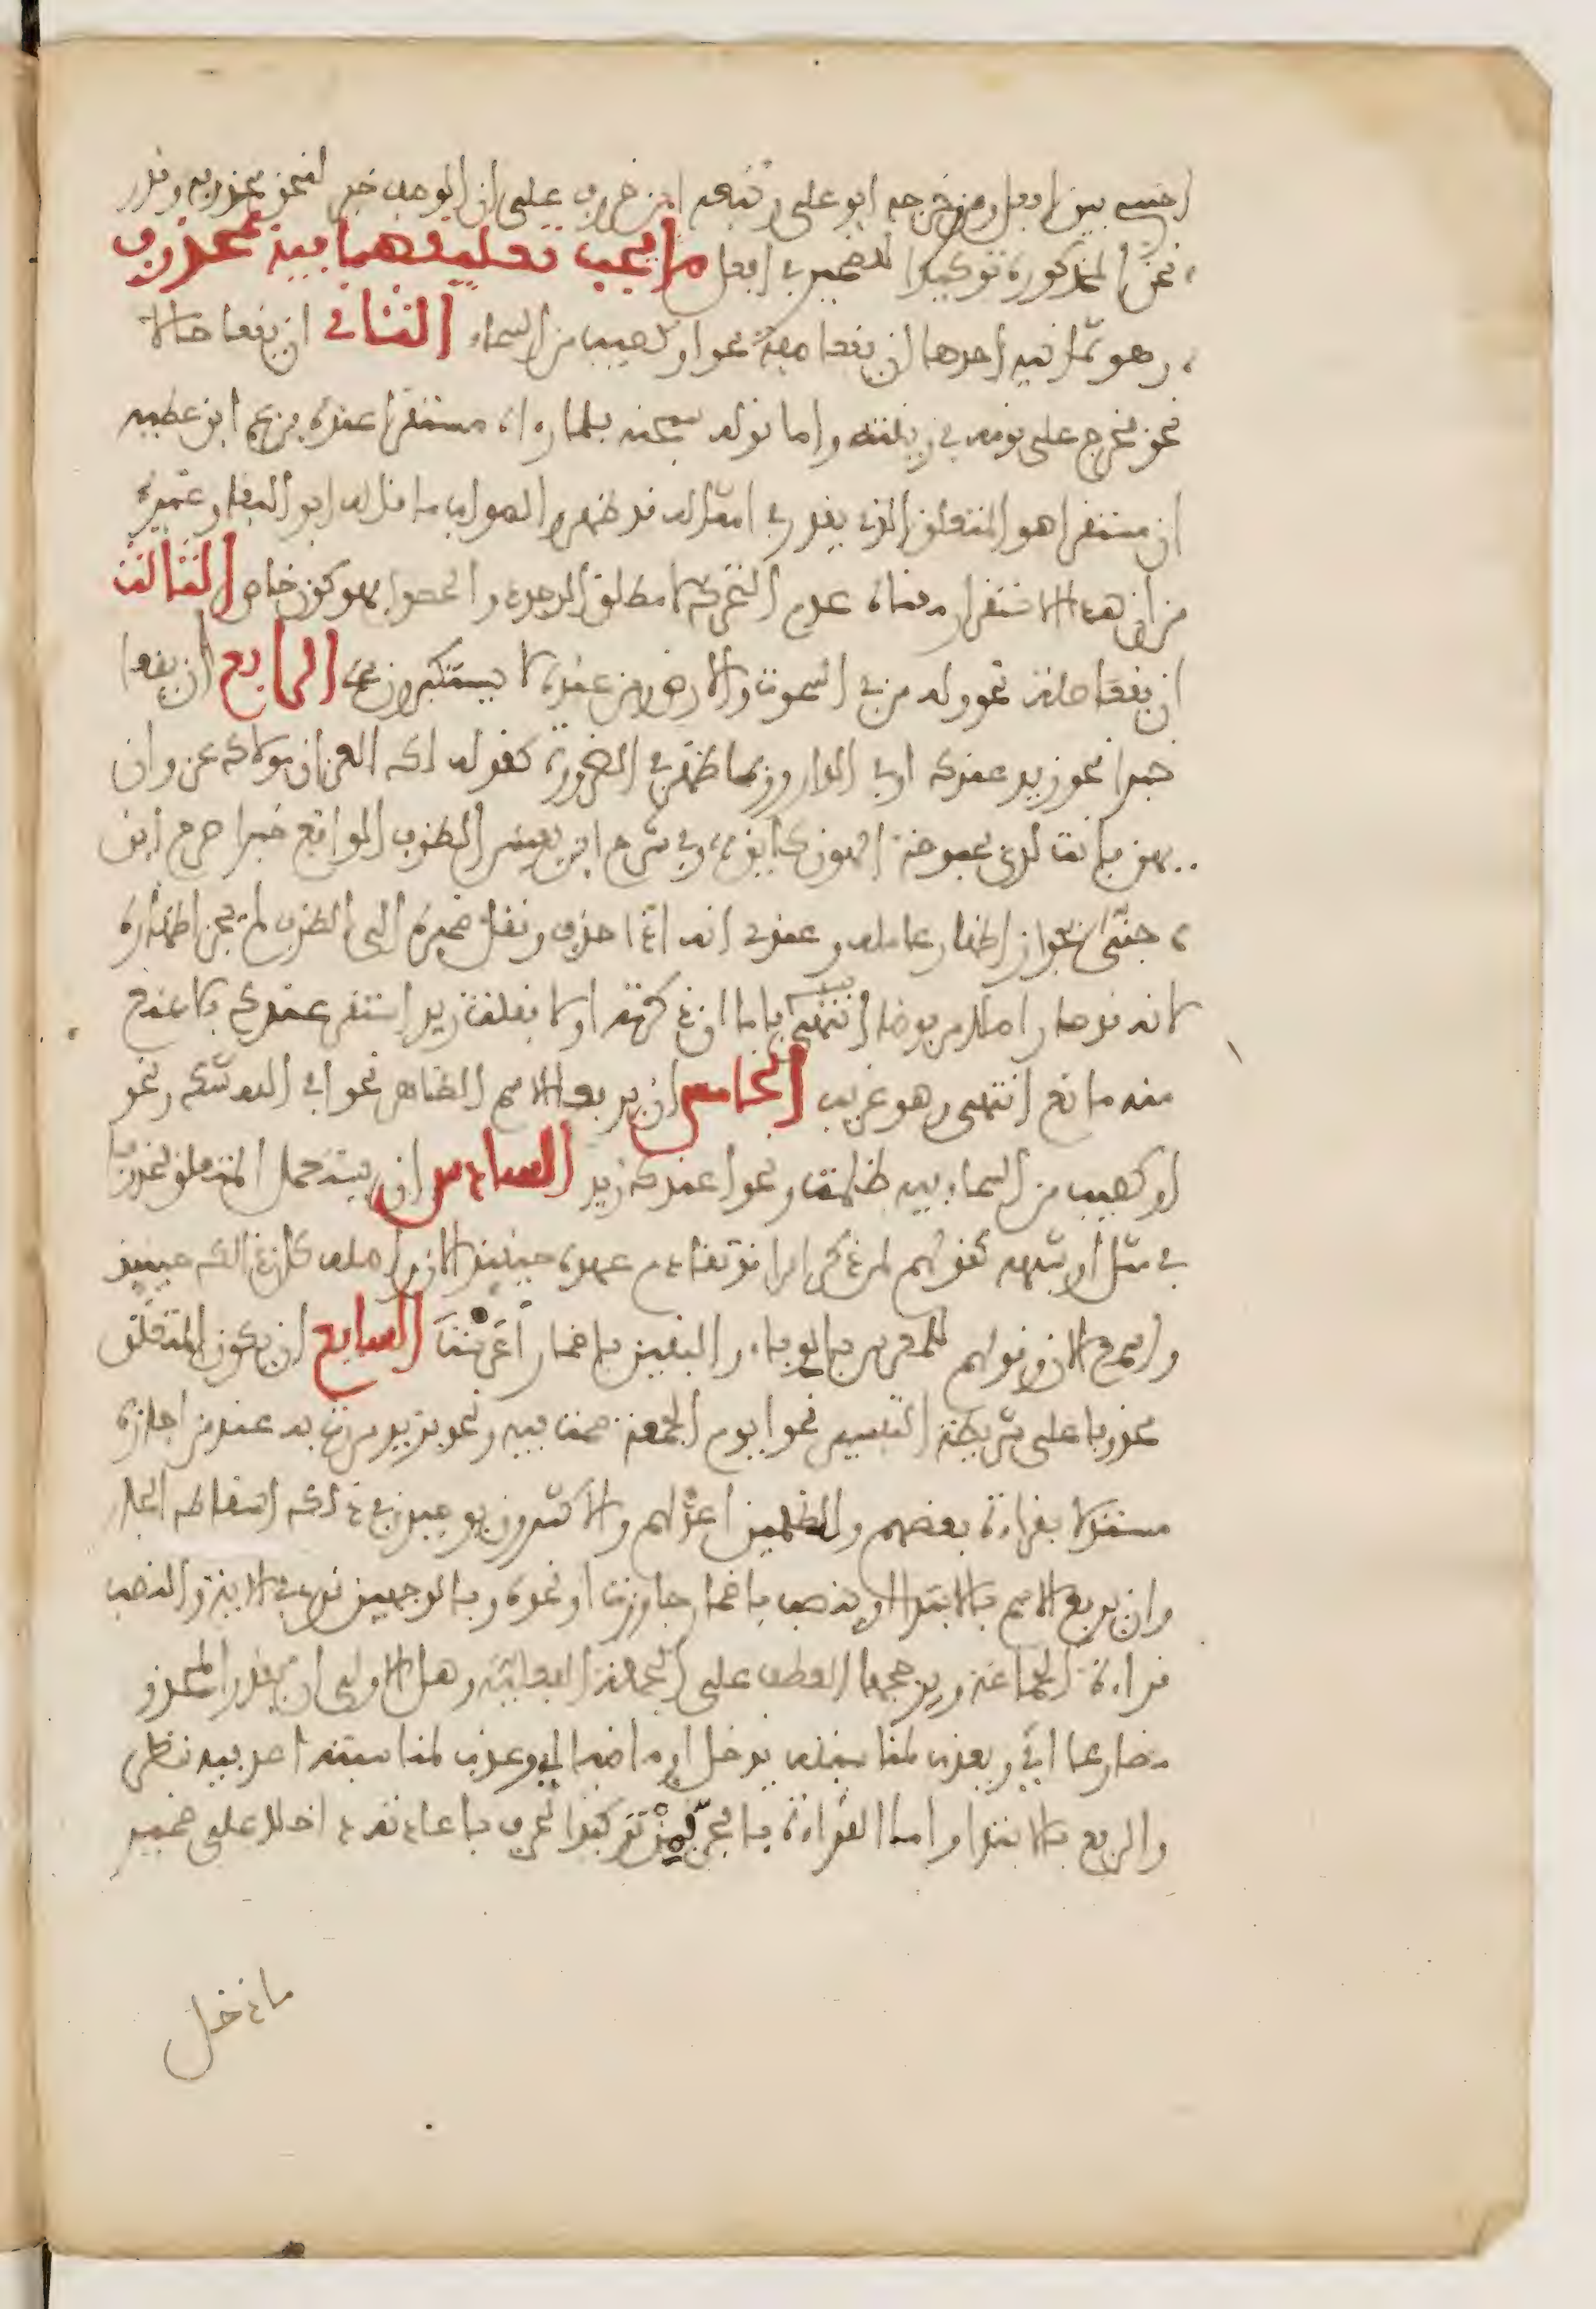 اجنبي بين افعل ومن وخرجه ابو علي وتبعه ابن خروف على ان الوصف خبر لنحن محذوفة وقدر
نحن المذكورة توكيدا للضمير في افعل ما يجب تعليقهما فيه بمحذوف
وهو ثمانية احدها ان يقعا صفة نحو او كصيب من السماء الثاني ان يقعا حالا
نحو فخرج على قومه في زينته واما قوله سبحنه فلما رءاه مستقرا عنده فزعم ابن عطية
ان مستقرا هو المتعلق الذي يقدر في امثاله قد ظهر والصواب ما قاله ابو البقاء وغيره
من ان هذا الاستقرار معناه عدم التحرك لا مطلق الوجود والحصول فهو كون خاص الثالث
ان يقعا صلة نحو وله من في السموت والارض ومن عنده لا يستكبرون الرابع ان يقعا
خبرا نحو زيد عندك او في الدار وربما ظهر في الضرورة كقوله لك العز ان مولاك عز وان
يهن فانت لدى بحبوحة الهون كاين وفي شرح ابن يعيش الظرف الواقع خبرا صرح ابن
جني بجواز اظهار عامله وعندي انه اذا حذف ونقل ضميره الى الظرف لم يجز اظهاره
لانه قد صار اصلا مرفوضا فاما ان ذكرته اولا فقلت زيد استقر عندك فلا يمنع
منه مانع انتهى وهو غريب الخامس ان يرفعا الاسم الظاهر نحو افي الله شك ونحو
او كصيب من السماء فيه ظلمت ونحو اعندك زيد السادس ان يستعمل المتعلق محذوفا
في مثل او شبهه كقولهم لمن ذكر امرا قد تقادم عهده حينئذ الان اصله كان ذالك حينئذ
واسمع الان وقولهم للمعرس بالرفاء والبنين باضمار اعرست السابع ان يكون المتعلق
محذوفا على شريطة التفسير نحو ايوم الجمعة صمت فيه ونحو بزيد مررت به عند من اجازه
مستدلا بقراءة بعضهم وللظلمين اعد لهم والاكثرون يوجبون في ذلك اسقاط الجار
وان يرفع الاسم بالابتداء او ينصب باضمار جاوزت او نحوه وبالوجهين قرئ في الاية والنصب
قراءة الجماعة ويرجحها العطف على الجملة الفعلية وهل الاولى ان يقدر المحذوف
مضارعا اي ويعذب لمناسبة يدخل او ماضيا اي وعذب لمناسبة اعد فيه نظر
والرفع بالابتداء واما القراءة بالجر فمن توكيد الحرف باعادته داخلا على ضمير
ما دخل